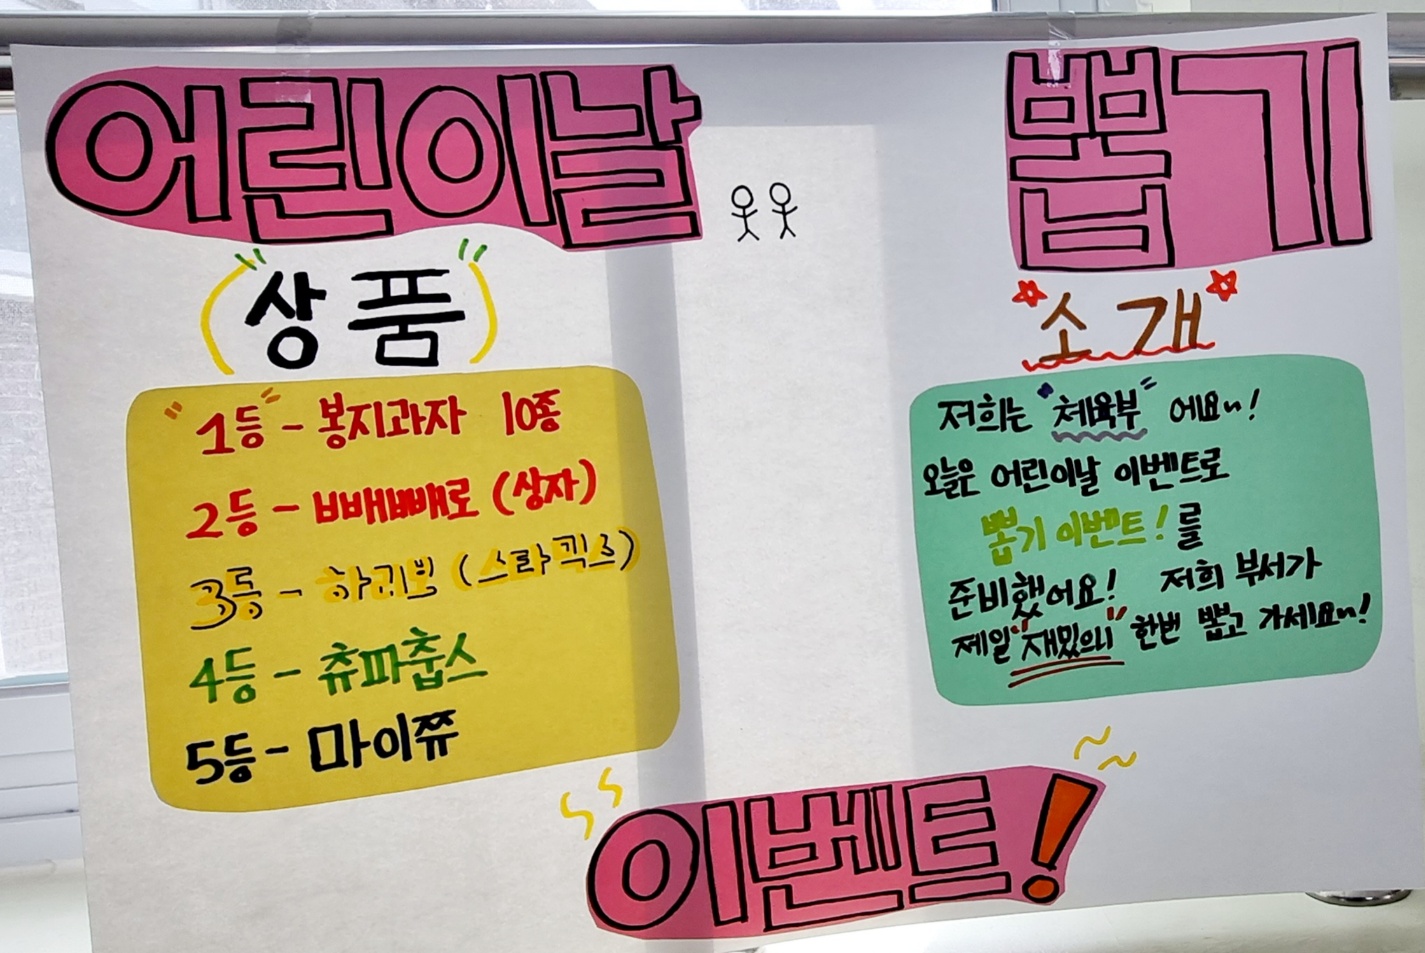 어린이날
뽑기
상품
"1등" - 봉지과자 10종
2등 - 빼빼로 (상자)
3등 - 하리보 (스타믹스)
4등 - 츄파춥스
5등 - 마이쮸
소개
저희는 "체육부" 에요~!
오늘은 어린이날 이벤트로
뽑기 이벤트!를
준비했어요! 저희 부서가
제일 "재밌으니" 한번 뽑고 가세요~!
이벤트!